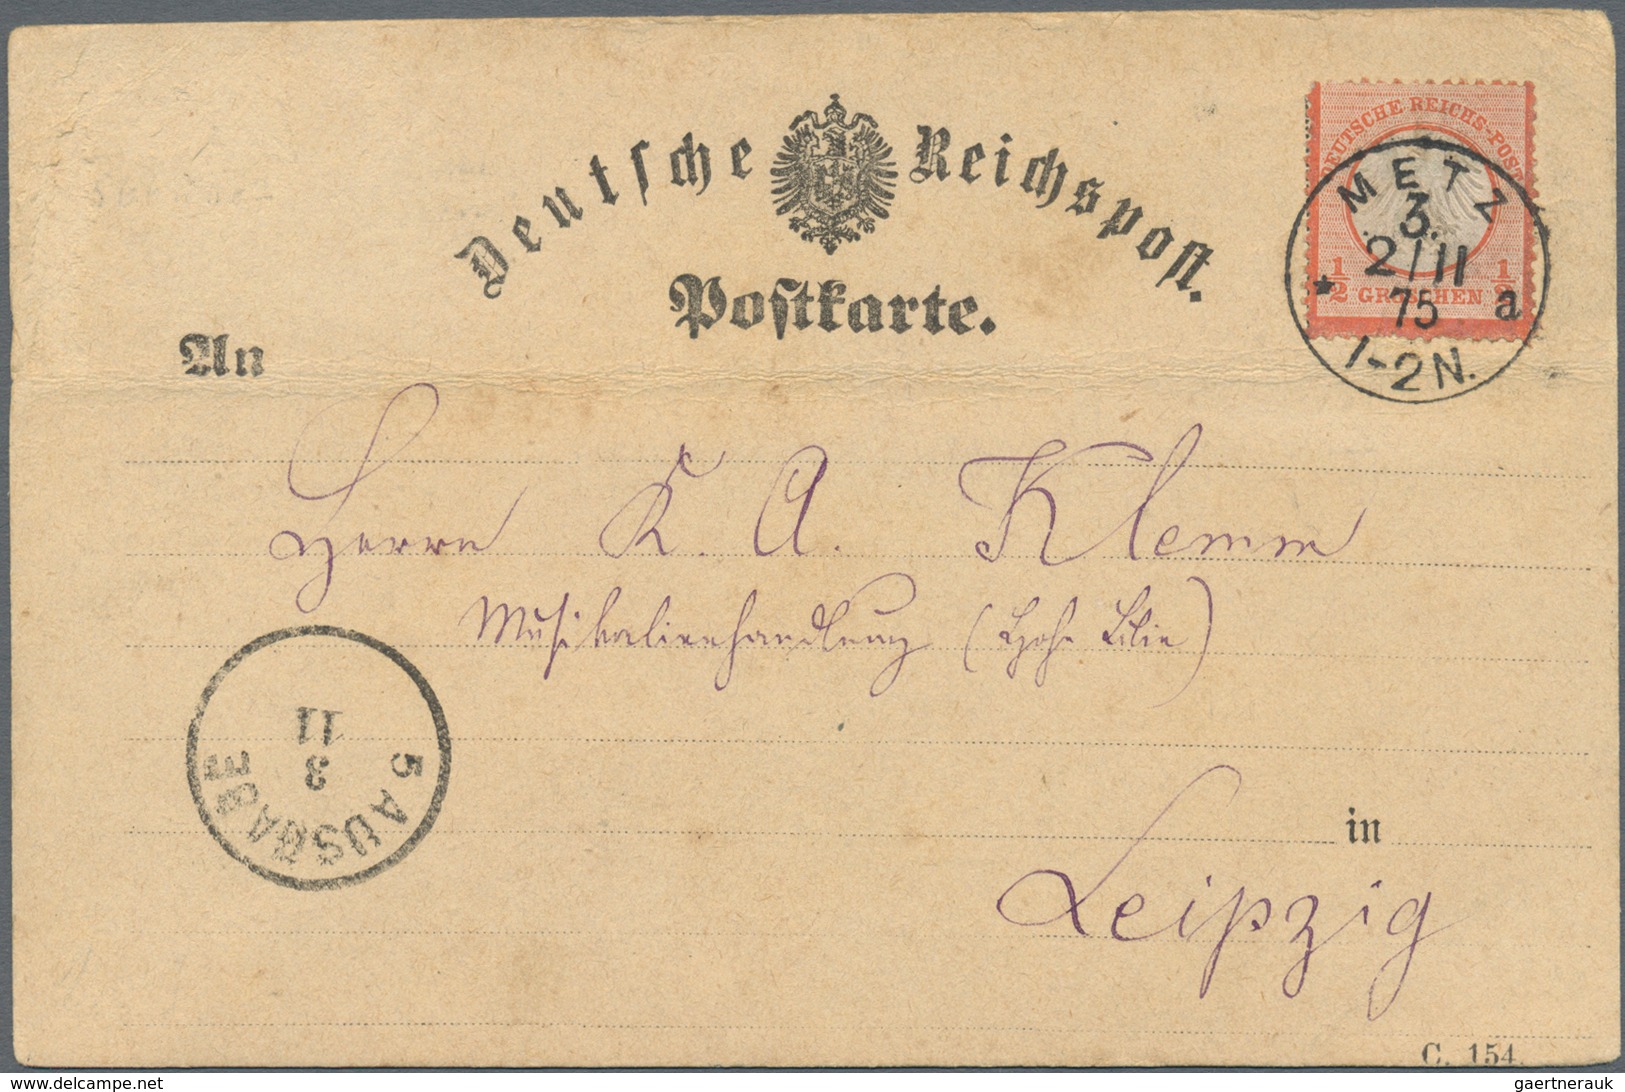 Deutsche Reichspost.
Postkarte.
DEUTSCHE REICHS-POST
1/2 GROSCHEN 1/2
METZ
3.
2/11
75
* a
1-2N.
An
Herrn K. A. Klemm
Musikalienhandlung (Hohe Lilie)
5 AUSGABE
3
11
in
Leipzig
C. 154.
gaertnerauk